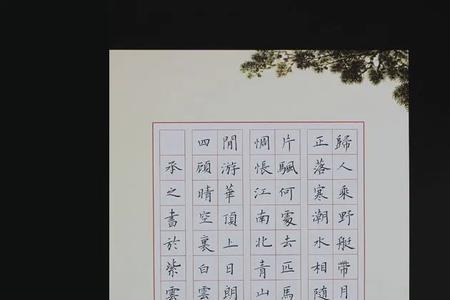 歸人乘野艇帶月
正落寒潮水相隨
片颿何處去匹馬
惆悵江南北青山
閒游華頂上日朗
四顧晴空裏白雲
承之書於紫雲